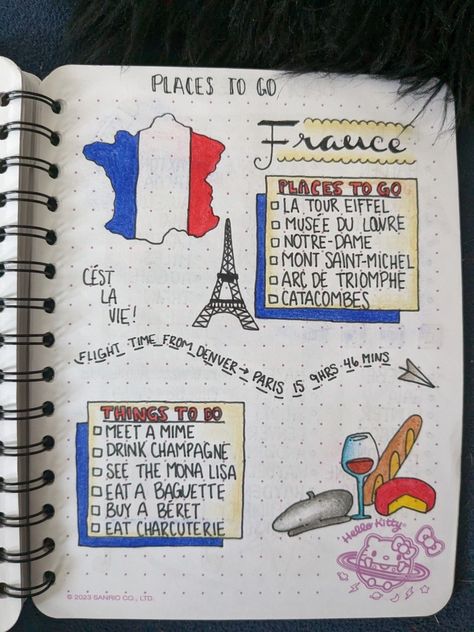 PLACES TO GO
France
PLACES TO GO
LA TOUR EIFFEL
MUSÉE DU LOUVRE
NOTRE-DAME
MONT SAINT-MICHEL
ARC DE TRIOMPHE
CATACOMBES
CÉST
LA
VIE!
FLIGHT TIME FROM DENVER → PARIS IS 9HRS 46 MINS
THINGS TO DO
MEET A MIME
DRINK CHAMPAGNE
SEE THE MONA LISA
EAT A BAGUETTE
BUY A BERET
EAT CHARCUTERIE
Hello Kitty
© 2023 SANRIO CO., LTD.